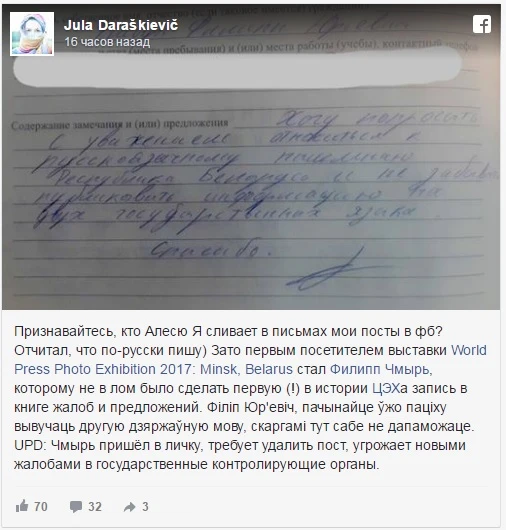 Jula Daraškievič
16 часов назад
места пребывания и (или) места работы (учебы), контактный
Содержание замечания и (или) предложения Хочу попросить
с уважением относиться к
русскоязычному населению
Республики Беларусь и не забывать
публиковать информацию на
двух государственных языка.
Спасибо.
Признавайтесь, кто Алесю Я сливает в письмах мои посты в фб?
Отчитал, что по-русски пишу) Зато первым посетителем выставки World
Press Photo Exhibition 2017: Minsk, Belarus стал Филипп Чмырь,
которому не в лом было сделать первую (!) в истории ЦЭХа запись в
книге жалоб и предложений. Філіп Юр'евіч, пачынайце ўжо паціху
вывучаць другую дзяржаўную мову, скаргамі тут сабе не дапаможаце.
UPD: Чмырь пришёл в личку, требует удалить пост, угрожает новыми
жалобами в государственные контролирующие органы.
70 32 3